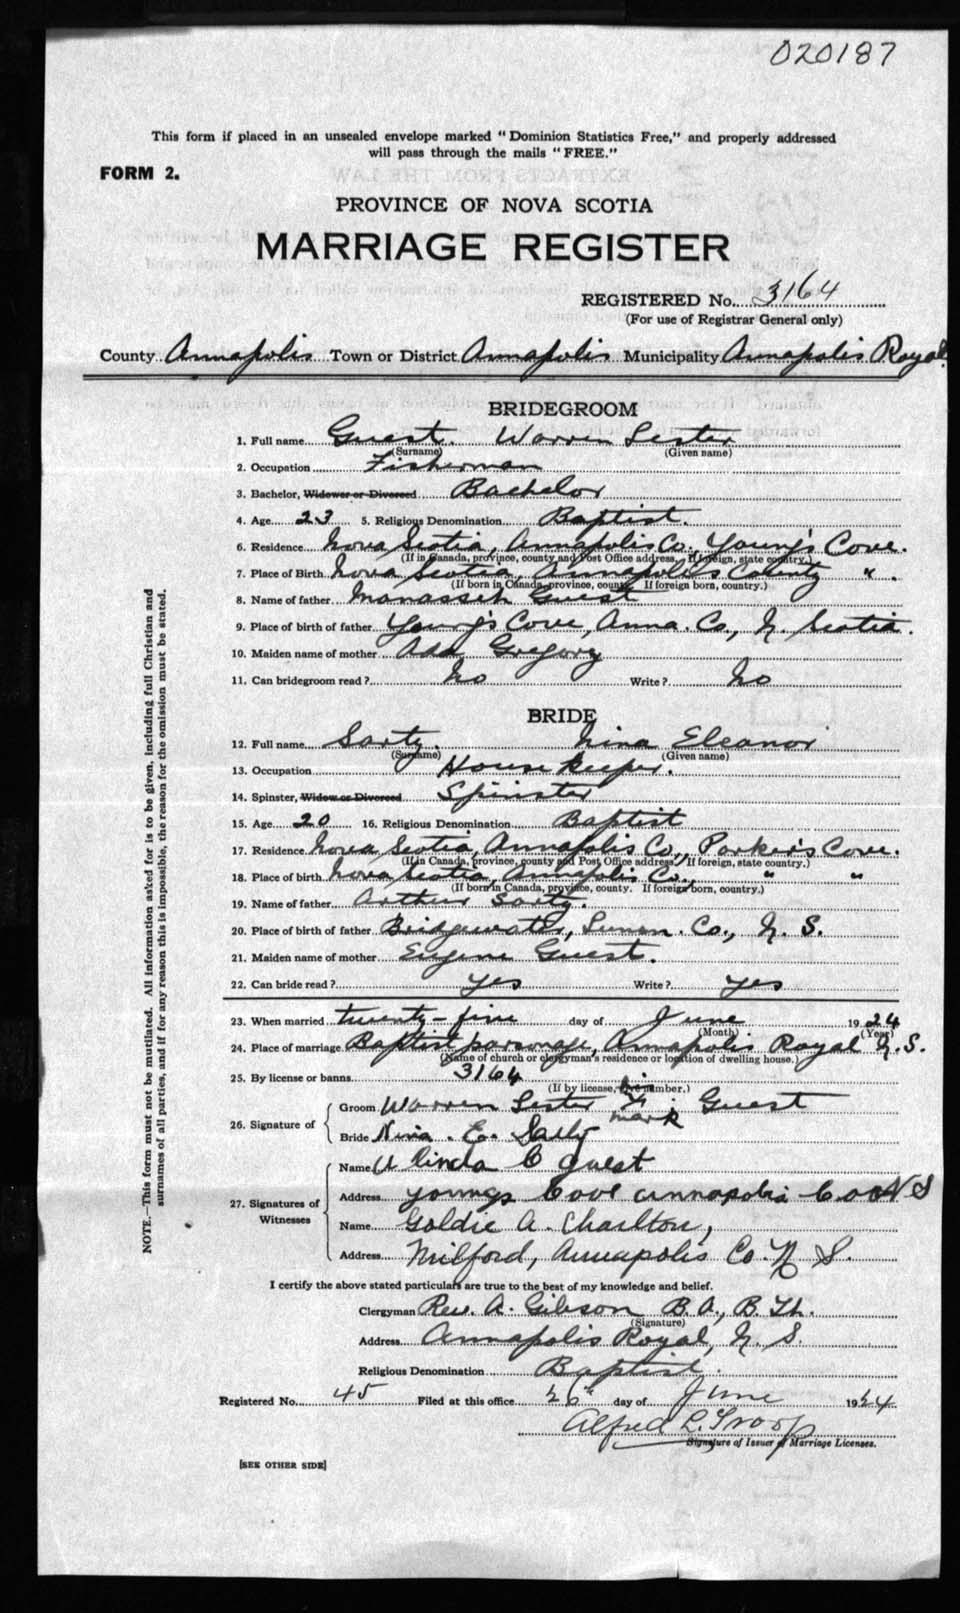 020187
This form if placed in an unsealed envelope marked "Dominion Statistics Free," and properly addressed
will pass through the mails "FREE."
FORM 2.
PROVINCE OF NOVA SCOTIA
MARRIAGE REGISTER
REGISTERED No. 3164
(For use of Registrar General only)
County Annapolis Town or District Annapolis Municipality Annapolis Royal
BRIDEGROOM
1. Full name Guest. Warren Lester
(Surname) (Given name)
2. Occupation Fisherman
3. Bachelor, Widower or Divorced Bachelor
4. Age 23 5. Religious Denomination Baptist.
6. Residence Nova Scotia, Annapolis Co., Young's Cove.
(If in Canada, province, county and Post Office address. If foreign, state country.)
7. Place of Birth Nova Scotia, Annapolis County " .
(If born in Canada, province, county. If foreign born, country.)
8. Name of father Manasseh Guest
9. Place of birth of father Young's Cove, Anna. Co., N. Scotia.
10. Maiden name of mother Ada Gregory
11. Can bridegroom read? No Write? No
BRIDE
12. Full name Sarty. Nina Eleanor
(Surname) (Given name)
13. Occupation Housekeeper.
14. Spinster, Widow or Divorced Spinster
15. Age 20 16. Religious Denomination Baptist
17. Residence Nova Scotia, Annapolis Co., Parker's Cove.
(If in Canada, province, county and Post Office address. If foreign, state country.)
18. Place of birth Nova Scotia, Annapolis Co., " "
(If born in Canada, province, county. If foreign born, country.)
19. Name of father Arthur Sarty.
20. Place of birth of father Bridgewater, Lunen. Co., N. S.
21. Maiden name of mother Eugene Guest.
22. Can bride read? yes Write? yes
23. When married twenty-five day of June 1924
(Month) (Year)
24. Place of marriage Baptist parsonage, Annapolis Royal N.S.
(Name of church or clergyman's residence or location of dwelling house.)
25. By license or banns 3164
(If by license, give number.)
26. Signature of
Groom Warren Lester his X mark Guest
Bride Nina. E. Sarty
27. Signatures of Witnesses
Name Alinda C Guest
Address youngs Cove annapolis Co N S
Name Goldie A. Charlton,
Address Milford, Annapolis Co. N. S.
I certify the above stated particulars are true to the best of my knowledge and belief.
Clergyman Rev. A. Gibson B.A., B.Th.
(Signature)
Address Annapolis Royal, N. S.
Religious Denomination Baptist.
Registered No. 45 Filed at this office 26th day of June 1924
Alfred L. Troop
Signature of Issuer of Marriage Licenses.
[SEE OTHER SIDE]
NOTE.—This form must not be mutilated. All information asked for is to be given, including full Christian and
surnames of all parties, and if for any reason this is impossible, the reason for the omission must be stated.